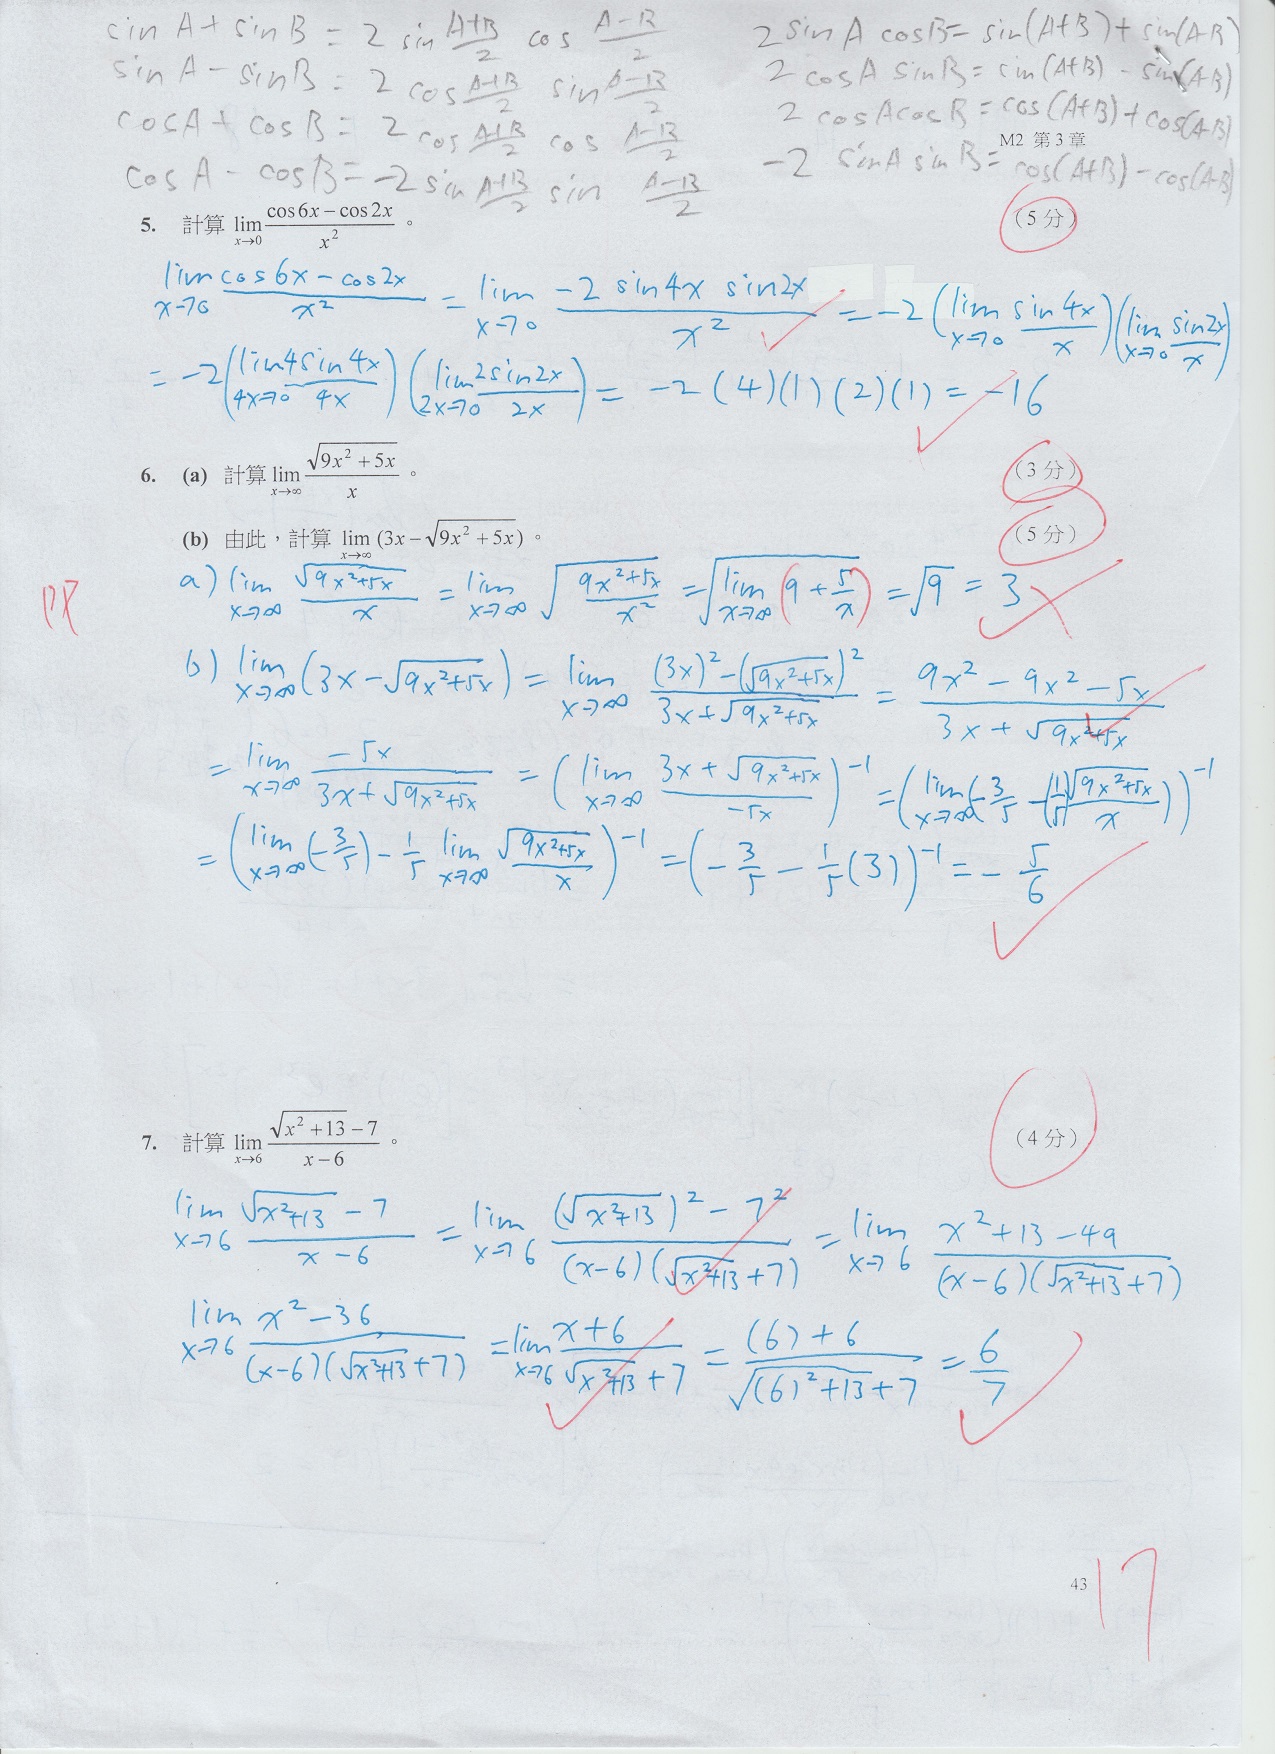 sin A + sin B = 2 sin (A+B)/2 cos (A-B)/2
2 sin A cos B = sin(A+B) + sin(A-B)
sin A - sin B = 2 cos (A+B)/2 sin (A-B)/2
2 cos A sin B = sin(A+B) - sin(A-B)
cos A + cos B = 2 cos (A+B)/2 cos (A-B)/2
2 cos A cos B = cos(A+B) + cos(A-B)
M2 第 3 章
cos A - cos B = -2 sin (A+B)/2 sin (A-B)/2
-2 sin A sin B = cos(A+B) - cos(A-B)
5. 計算 lim x→0 (cos 6x − cos 2x)/x² 。 (5 分)
lim x→0 (cos 6x - cos 2x)/x² = lim x→0 (-2 sin 4x sin 2x)/x² = -2 (lim x→0 sin 4x/x)(lim x→0 sin 2x/x)
= -2 (lim 4x→0 4 sin 4x/4x)(lim 2x→0 2 sin 2x/2x) = -2 (4)(1)(2)(1) = -16
6. (a) 計算 lim x→∞ √(9x² + 5x)/x 。 (3 分)
(b) 由此，計算 lim x→∞ (3x − √(9x² + 5x)) 。 (5 分)
a) lim x→∞ √(9x²+5x)/x = lim x→∞ √((9x²+5x)/x²) = √(lim x→∞ (9 + 5/x)) = √9 = 3
b) lim x→∞ (3x - √(9x²+5x)) = lim x→∞ ((3x)² - (√(9x²+5x))²)/(3x + √(9x²+5x)) = (9x² - 9x² - 5x)/(3x + √(9x²+5x))
= lim x→∞ -5x/(3x + √(9x²+5x)) = (lim x→∞ (3x + √(9x²+5x))/-5x)⁻¹ = (lim x→∞ - 3/5 - (1/5) √(9x²+5x)/x)⁻¹
= (lim x→∞ (-3/5) - 1/5 lim x→∞ √(9x²+5x)/x)⁻¹ = (-3/5 - 1/5 (3))⁻¹ = - 5/6
7. 計算 lim x→6 (√(x² + 13) − 7)/(x − 6) 。 (4 分)
lim x→6 (√(x²+13) - 7)/(x - 6) = lim x→6 ((√(x²+13))² - 7²)/((x-6)(√(x²+13) + 7)) = lim x→6 (x² + 13 - 49)/((x-6)(√(x²+13) + 7))
lim x→6 (x² - 36)/((x-6)(√(x²+13) + 7)) = lim x→6 (x+6)/(√(x²+13) + 7) = ((6) + 6)/(√((6)²+13) + 7) = 6/7
43
17